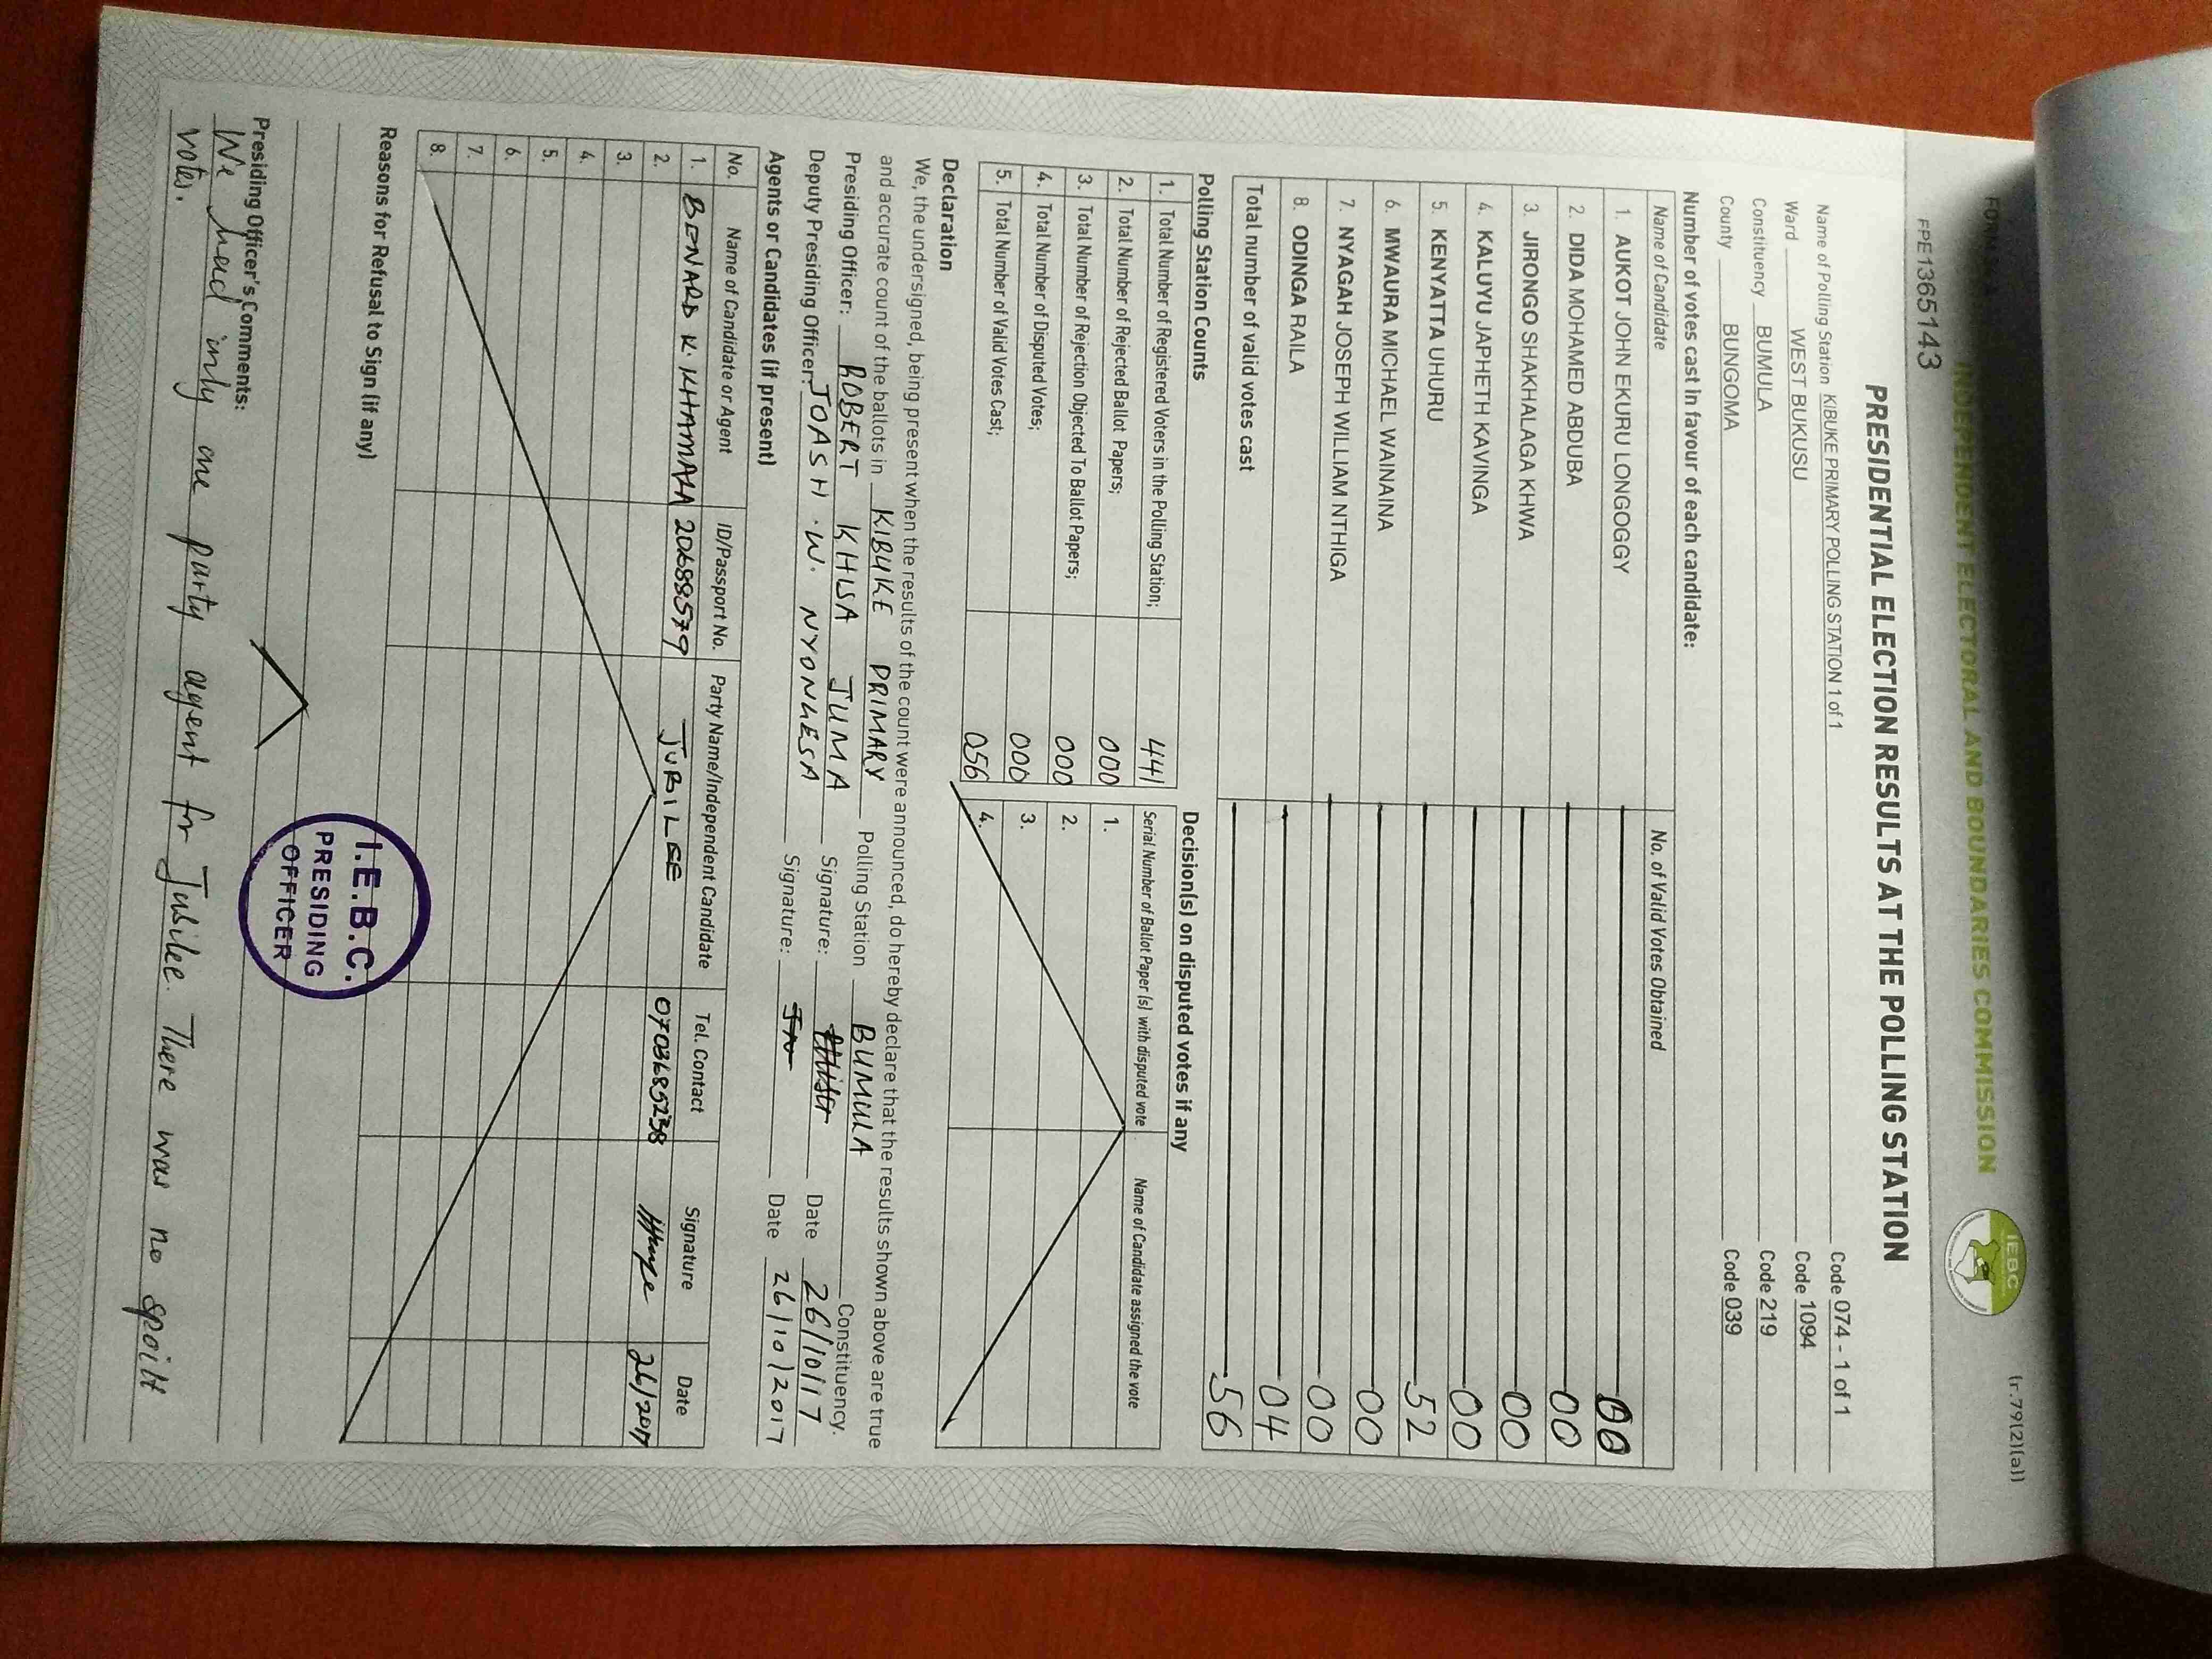 INDEPENDENT ELECTORAL AND BOUNDARIES COMMISSION
IEBC
(r.79(2)(a))
FPE1365143
PRESIDENTIAL ELECTION RESULTS AT THE POLLING STATION
Name of Polling Station KIBUKE PRIMARY POLLING STATION 1 of 1 Code 074 - 1 of 1
Ward WEST BUKUSU Code 1094
Constituency BUMULA Code 219
County BUNGOMA Code 039
Number of votes cast in favour of each candidate:
Name of Candidate No. of Valid Votes Obtained
1. AUKOT JOHN EKURU LONGOGGY 00
2. DIDA MOHAMED ABDUBA 00
3. JIRONGO SHAKHALAGA KHWA 00
4. KALUYU JAPHETH KAVINGA 00
5. KENYATTA UHURU 52
6. MWAURA MICHAEL WAINAINA 00
7. NYAGAH JOSEPH WILLIAM NTHIGA 00
8. ODINGA RAILA 04
Total number of valid votes cast 56
Polling Station Counts Decision(s) on disputed votes if any
Serial Number of Ballot Paper (s) with disputed vote Name of Candidate assigned the vote
1. Total Number of Registered Voters in the Polling Station; 441 1.
2. Total Number of Rejected Ballot Papers; 000 2.
3. Total Number of Rejection Objected To Ballot Papers; 000 3.
4. Total Number of Disputed Votes; 000 4.
5. Total Number of Valid Votes Cast; 056
Declaration
We, the undersigned, being present when the results of the count were announced, do hereby declare that the results shown above are true
and accurate count of the ballots in KIBUKE PRIMARY Polling Station BUMULA Constituency.
Presiding Officer: ROBERT KHLSA JUMA Signature: Date 26/10/17
Deputy Presiding Officer: JOASH .W. NYONGESA Signature: Date 26/10/2017
Agents or Candidates (if present)
No. Name of Candidate or Agent ID/Passport No. Party Name/Independent Candidate Tel. Contact Signature Date
1. BENARD K. KHAMALA 20688579 JUBILEE 0703685238 26/2017
2.
3.
4.
5.
6.
7.
8.
Reasons for Refusal to Sign (if any)
I.E.B.C.
PRESIDING
OFFICER
Presiding Officer's Comments:
We had only one party agent for Jubilee. There was no spoilt
votes.